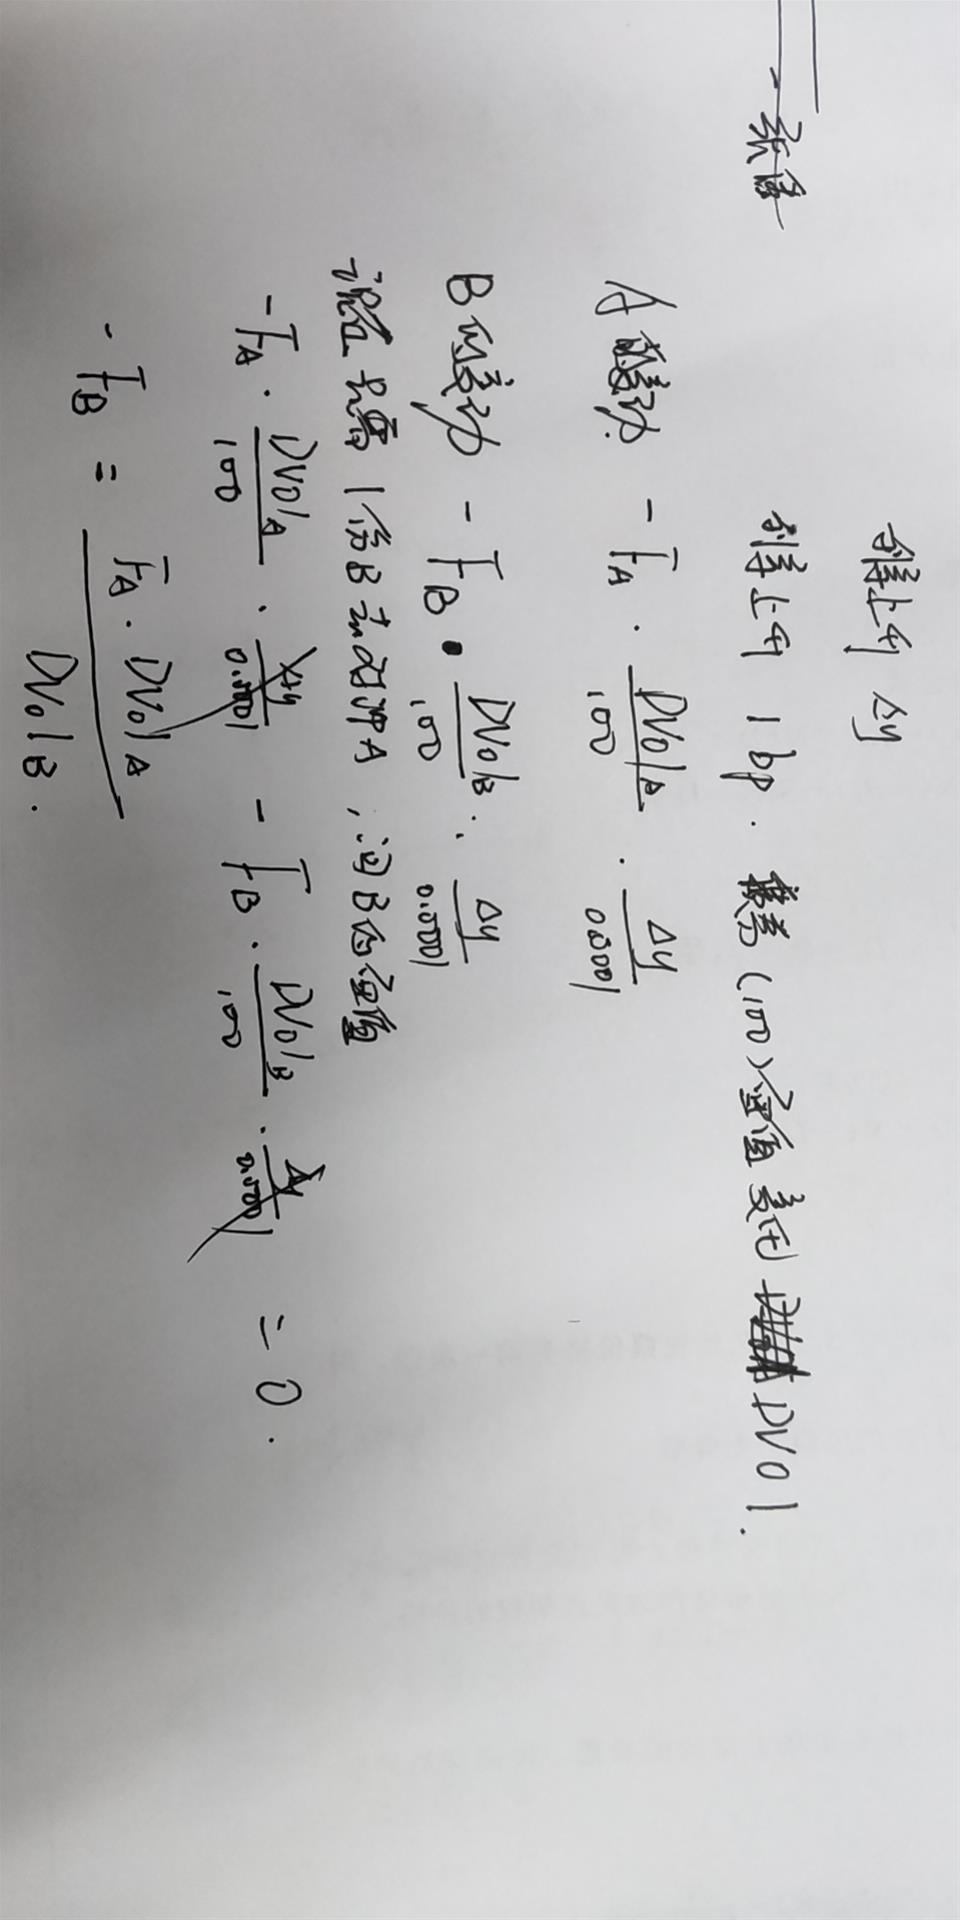 利率上升 Δy
一张债
利率上升 1bp. 债券(100)面值变化 DV01.
A的变动 - F_A · DV01_A/100 · Δy/0.0001
B的变动 - F_B · DV01_B/100 · Δy/0.0001
现在 1份B去对冲A，问B的面值
- F_A · DV01_A/100 · Δy/0.0001 - F_B · DV01_B/100 · Δy/0.0001 = 0.
- F_B = F_A · DV01_A / DV01_B.